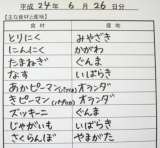 平成 24年 6月 26日分
【主な食材と産地】
食材 産地
とりにく みやざき
にんにく かがわ
たまねぎ ぐんま
なす いばらき
あかピーマン(パプリカ) オランダ
きピーマン(パプリカ) オランダ
ズッキーニ ぐんま
じゃがいも いばらき
さくらんぼ やまがた